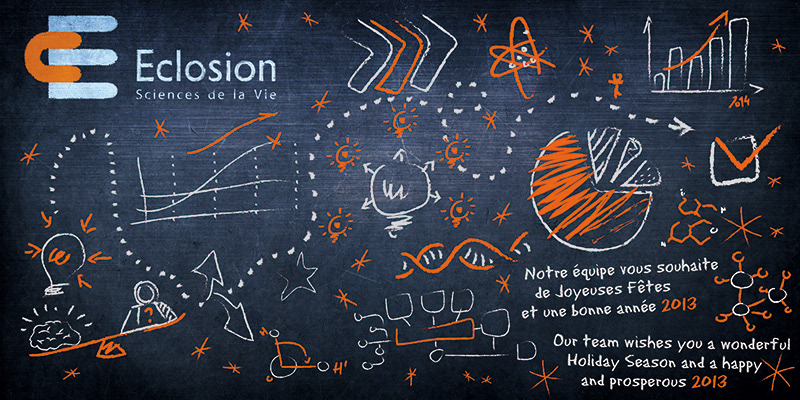 Eclosion
Sciences de la Vie
2014
?
H'
Notre équipe vous souhaite
de Joyeuses Fêtes
et une bonne année 2013
Our team wishes you a wonderful
Holiday Season and a happy
and prosperous 2013